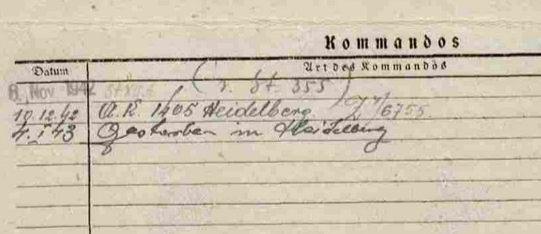 Kommandos
Datum Art des Kommandos
8. Nov. 1942 (v. St. 355)
10.12.42 A.K. 1405 Heidelberg Z4/6755
4.I 43 Gestorben in Heidelberg